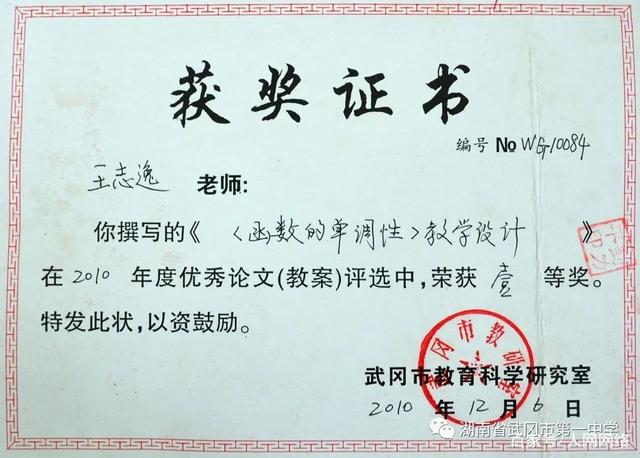 获奖证书
编号 No WG10084
王志逸 老师:
你撰写的《〈函数的单调性〉教学设计》
在2010年度优秀论文(教案)评选中,荣获 壹 等奖。
特发此状,以资鼓励。
武冈市教研室
武冈市教育科学研究室
2010 年 12 月 6 日
湖南省武冈市第一中学
百家号/人网网络